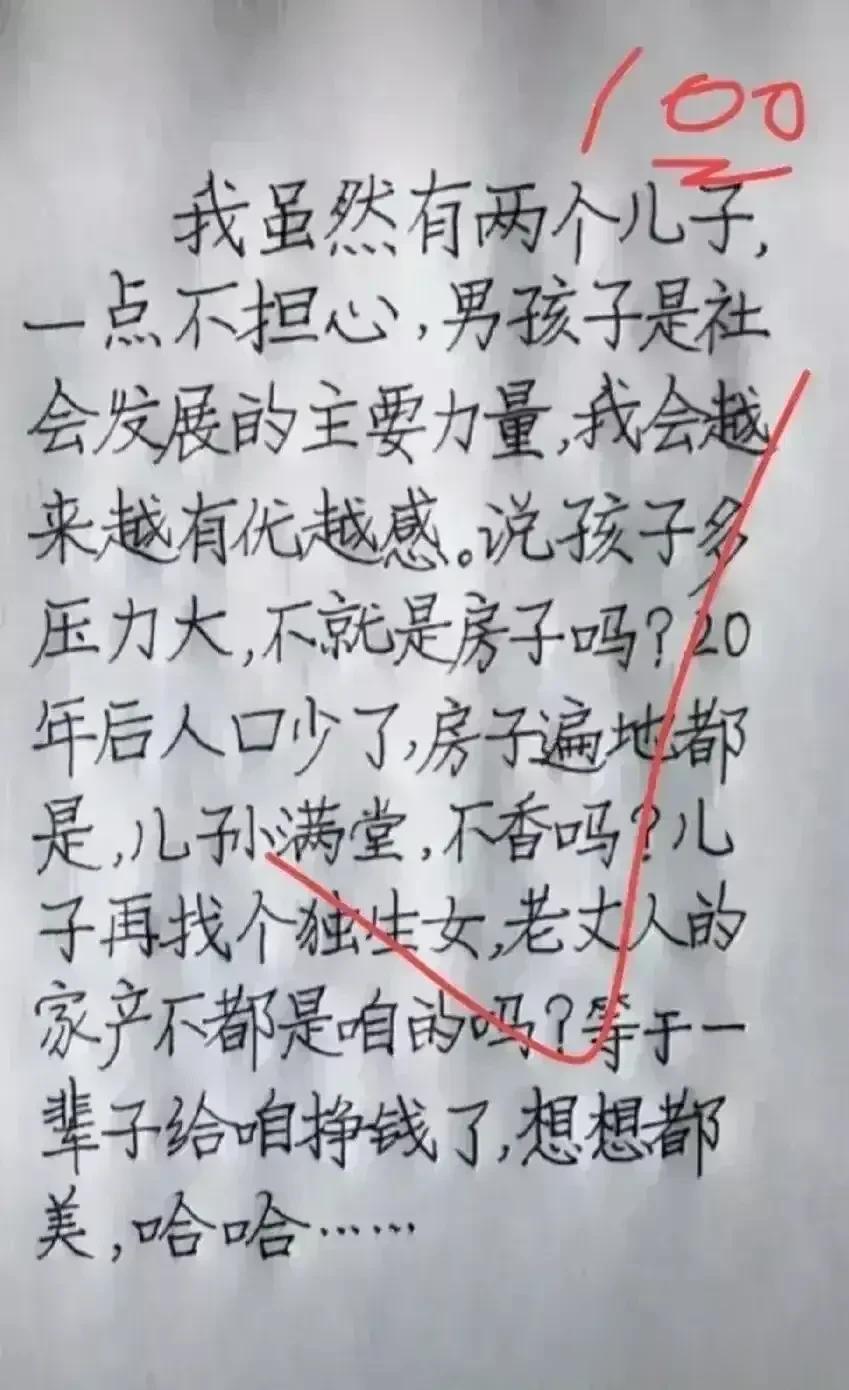 100
我虽然有两个儿子,
一点不担心,男孩子是社
会发展的主要力量,我会越
来越有优越感。说孩子多
压力大,不就是房子吗?20
年后人口少了,房子遍地都
是,儿子孙满堂,不香吗?儿
子再找个独生女,老丈人的
家产不都是咱的吗?等于一
辈子给咱挣钱了,想想都
美,哈哈……